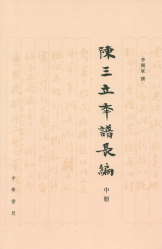 李開軍 撰
陳三立年譜長編
中冊
中華書局